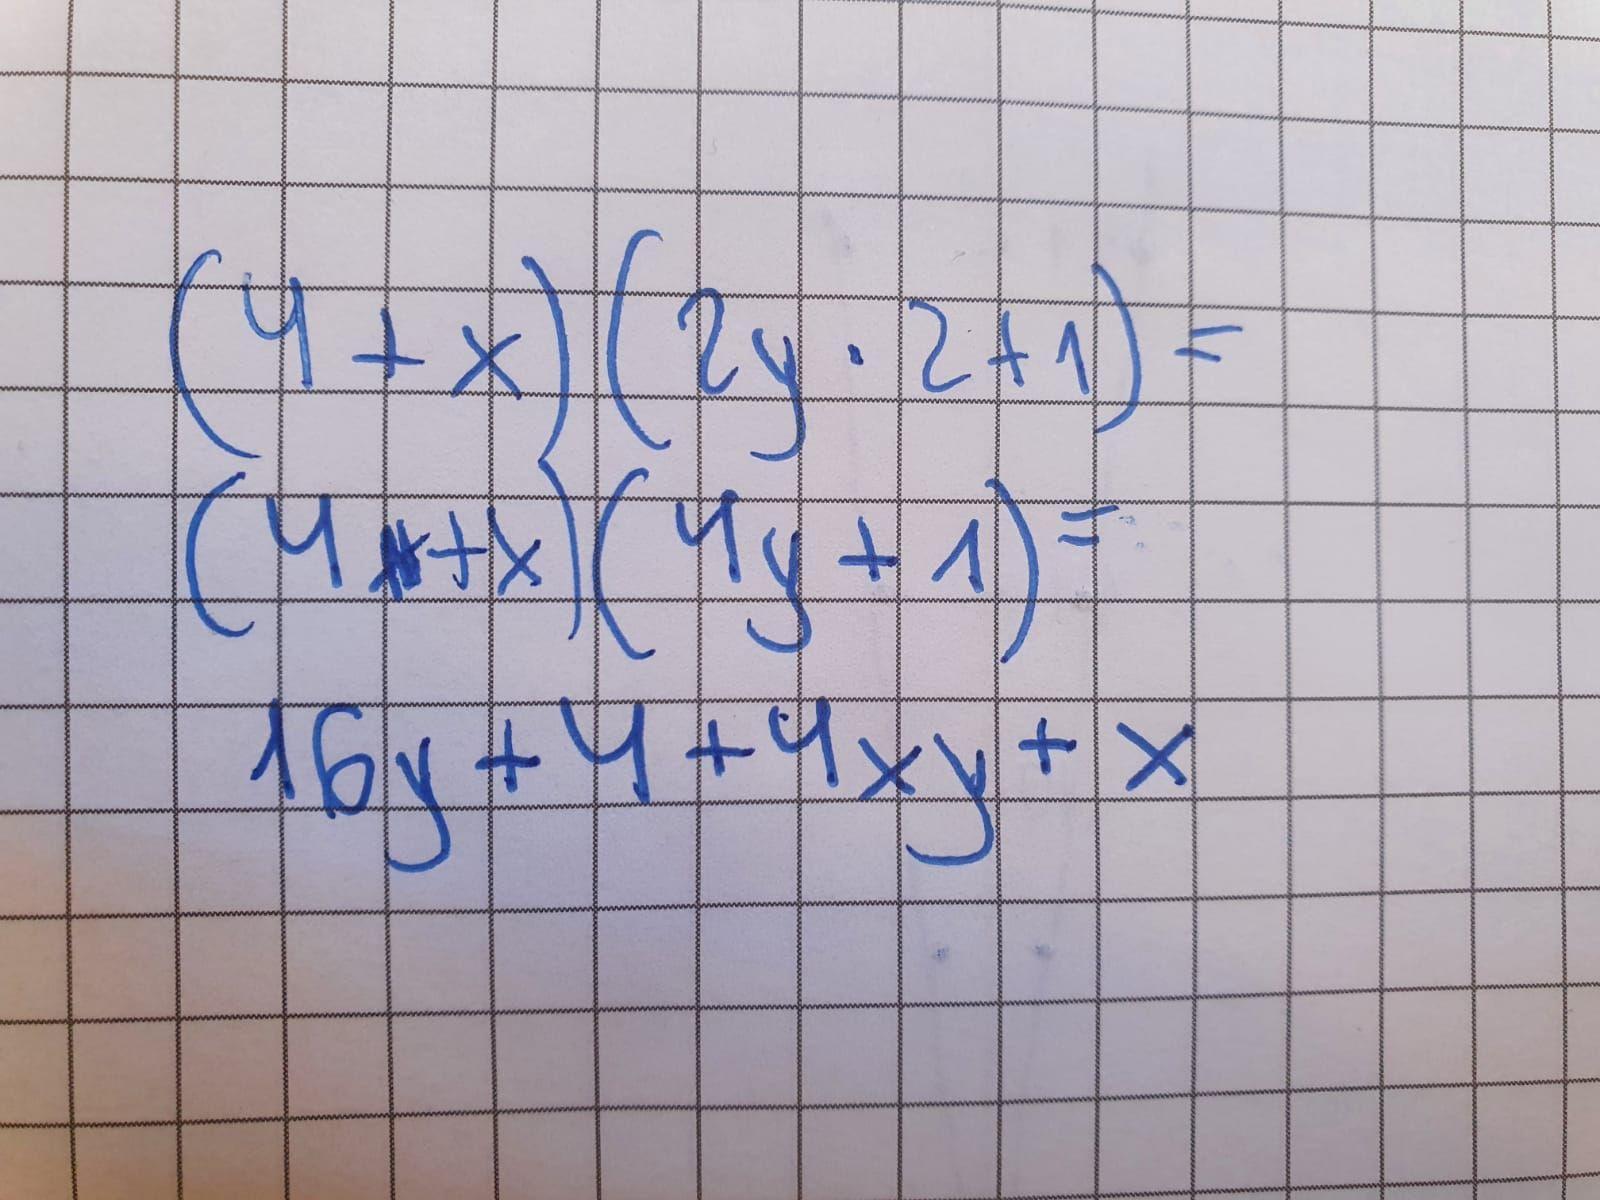 (4 + x)(2y · 2 + 1) =
(4 + x)(4y + 1) =
16y + 4 + 4xy + x